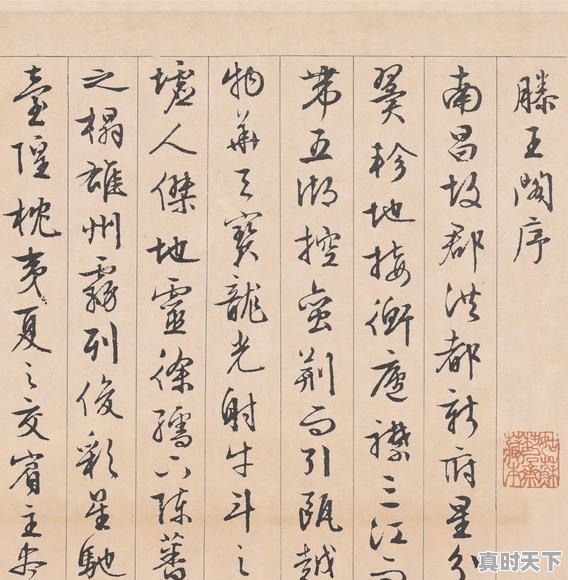 滕王阁序
南昌故郡洪都新府星分
翼轸地接衡庐襟三江而
带五湖控蛮荆而引瓯越
物华天宝龙光射牛斗之
墟人傑地靈徐孺下陈蕃
之榻雄州霧列俊彩星馳
臺隍枕夷夏之交賓主尽
真时天下